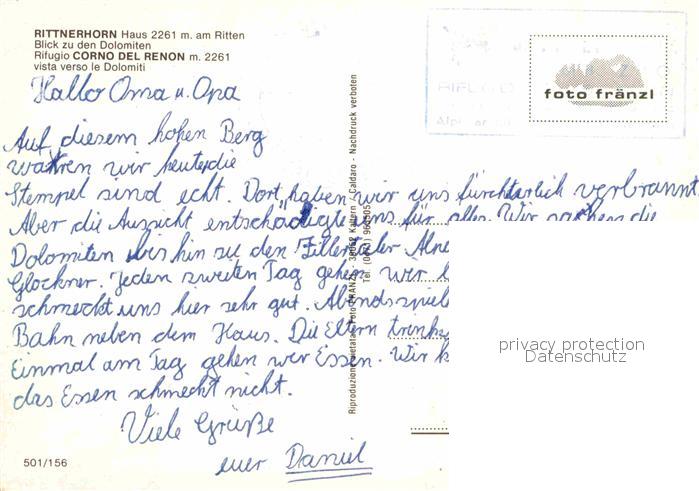 RITTNERHORN Haus 2261 m. am Ritten
Blick zu den Dolomiten
Rifugio CORNO DEL RENON m. 2261
vista verso le Dolomiti
foto fränzl
Hallo Oma u. Opa
Auf diesem hohen Berg
wahren wir heute, die
Stempel sind echt. Dort haben wir uns fürchterlich verbrannt
Aber die Aussicht entschädigte uns für alles. Wir sahen die
Dolomiten bis hin zu den Zillertaler
Glockner. Jeden zweiten Tag gehen wir
schmeckt uns hier sehr gut. Abends
Bahn neben dem Haus. Die Eltern
Einmal am Tag gehen wir Essen. Wir
das Essen schmeckt nicht.
Viele Grüße
euer Daniel
501/156
Nachdruck verboten
privacy protection
Datenschutz